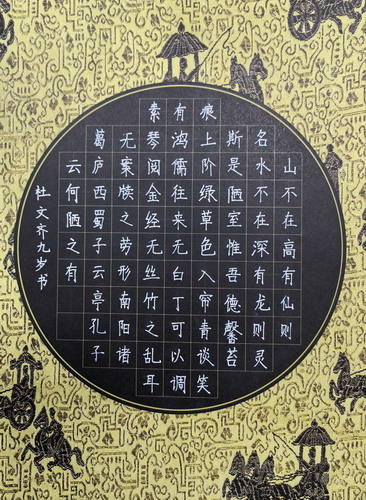 山不在高有仙则
名水不在深有龙则灵
斯是陋室惟吾德馨苔
痕上阶绿草色入帘青谈笑
有鸿儒往来无白丁可以调
素琴阅金经无丝竹之乱耳
无案牍之劳形南阳诸
葛庐西蜀子云亭孔子
云何陋之有
杜文齐九岁书